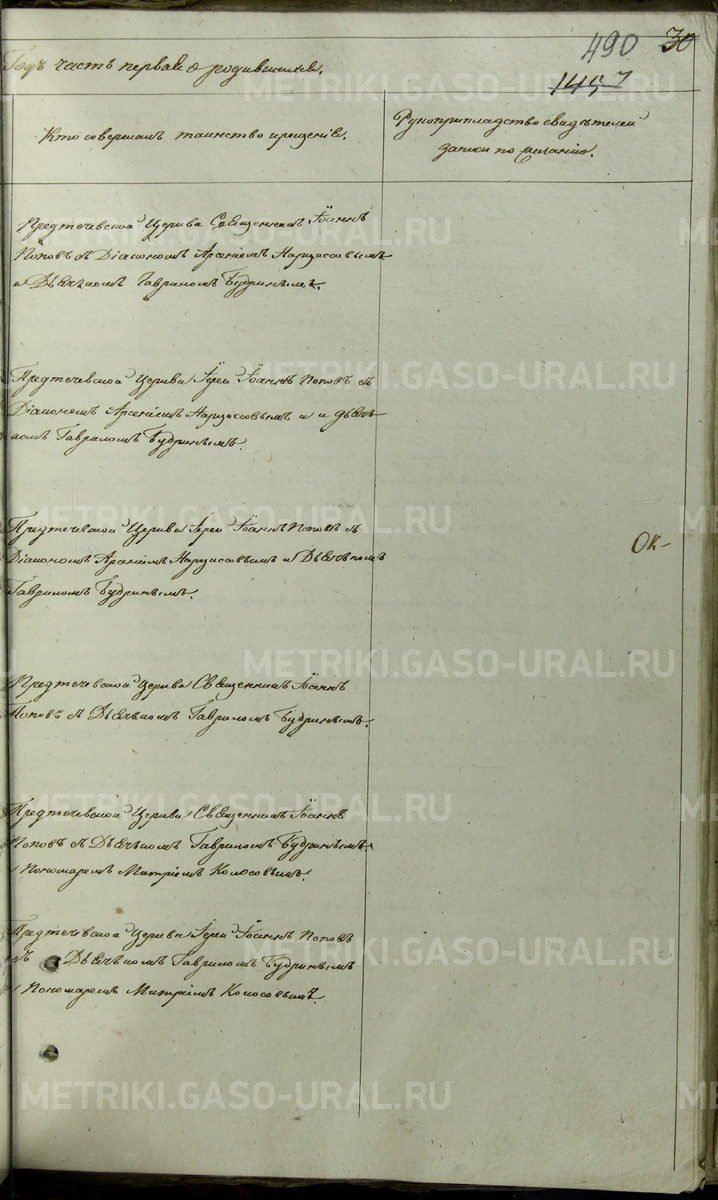 490 30
1457
Годъ часть первая о родившихся.
Кто совершалъ таинство крещенія.
Рукоприкладство свидѣтелей
записи по желанію.
Предтечевской Церкви Священникъ Іоаннъ
Поповъ съ Діакономъ Арсеніемъ Нарциссовымъ
и Дьячкомъ Гавриломъ Будринымъ.
Предтечевской Церкви Іерей Іоаннъ Поповъ съ
Діакономъ Арсеніемъ Нарциссовымъ и и дьяч-
комъ Гавриломъ Будринымъ.
Предтечевской Церкви Іерей Іоаннъ Поповъ съ
Діакономъ Арсеніемъ Нарциссовымъ и Дьячкомъ
Гавриломъ Будринымъ.
ОК-
Предтечевской Церкви Священникъ Іоаннъ
Поповъ съ Дьячкомъ Гавриломъ Будринымъ.
Предтечевской Церкви Священникъ Іоаннъ
Поповъ съ Дьячкомъ Гавриломъ Будринымъ
и Пономаремъ Митріемъ Колосовымъ.
Предтечевской Церкви Іерей Іоаннъ Поповъ
съ Дьячкомъ Гавриломъ Будринымъ
и Пономаремъ Митріемъ Колосовымъ.
METRIKI.GASO-URAL.RU